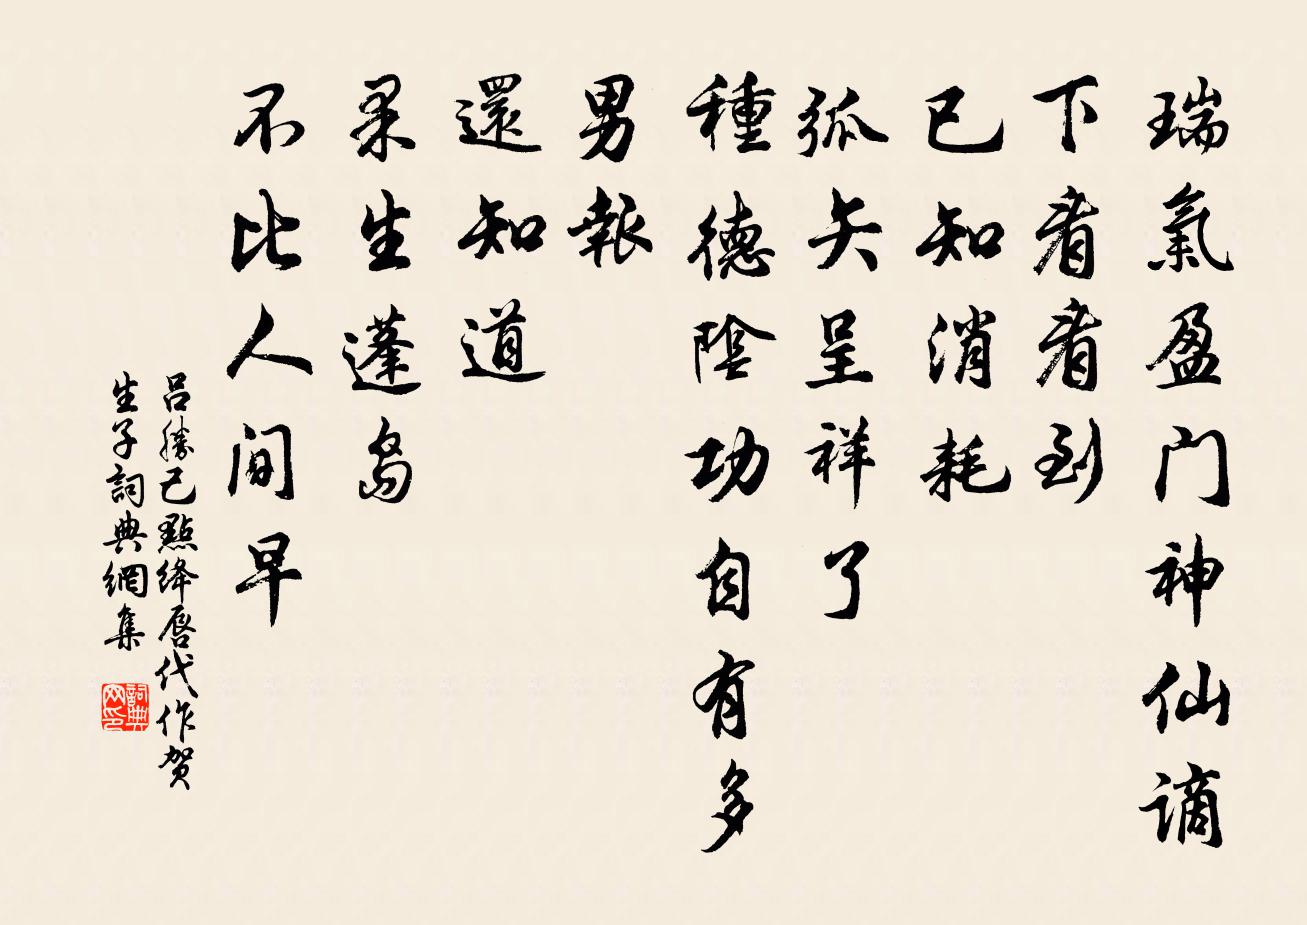 瑞氣盈门神仙谪
下看看到
已知消耗
弧矢呈祥了
種德陰功自有多
男報
還知道
果生蓬岛
不比人间早
吕勝己點绛唇代作贺
生子詞典網集
詞典网印